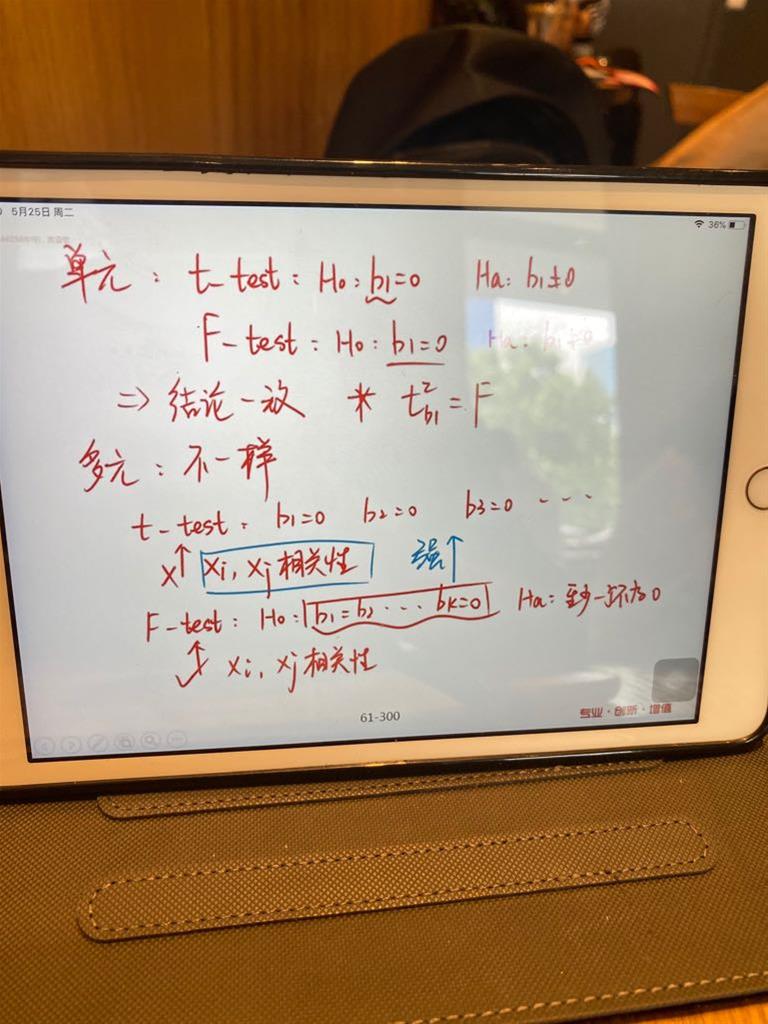 5月25日 周二
36%
单元: t-test: H0: b1=0 Ha: b1≠0
F-test: H0: b1=0 Ha: b1≠0
⇒ 结论一致 * t²b1 = F
多元: 不一样
t-test: b1=0 b2=0 b3=0 ...
x↑ xi, xj 相关性 强↑
F-test: H0: b1=b2...bk=0 Ha: 至少一个不为0
xi, xj 相关性
61-300
专业·创新·增值